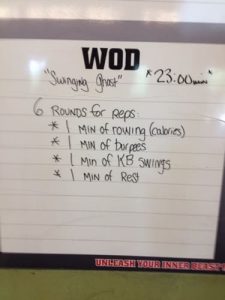 WOD
"Swinging Ghost" *23:00min*
6 ROUNDS for Reps:
* 1 Min of rowing (calories)
* 1 Min of burpees
* 1 Min of KB swings
* 1 Min of Rest
UNLEASH YOUR INNER BEAST